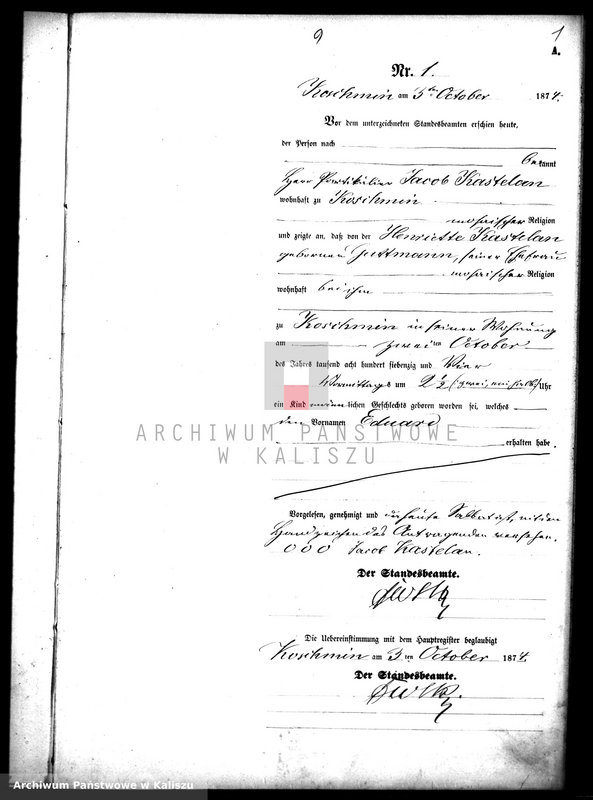 9
1
A.
Nr. 1.
Koschmin am 3ten October 1874.
Vor dem unterzeichneten Standesbeamten erschien heute,
der Person nach
bekannt
Herr Partikulier Jacob Kastelan
wohnhaft zu Koschmin
mosaischer Religion
und zeigte an, daß von der Henriette Kastelan
geborenen Guttmann, seiner Ehefrau
mosaischer Religion
wohnhaft bei ihm
zu Koschmin in seiner Wohnung
am zweiten October
des Jahres tausend acht hundert siebenzig und Vier
Vormittags um 2½ (zwei, ein halb) Uhr
ein Kind männlichen Geschlechts geboren worden sei, welches
den Vornamen Eduard
erhalten habe.
ARCHIWUM PAŃSTWOWE
W KALISZU
Vorgelesen, genehmigt und mit dem
Handzeichen des versehen.
000 Jacob Kastelan.
Der Standesbeamte.
Die Uebereinstimmung mit dem Hauptregister beglaubigt
Koschmin am 3ten October 1874.
Der Standesbeamte.
Archiwum Państwowe w Kaliszu